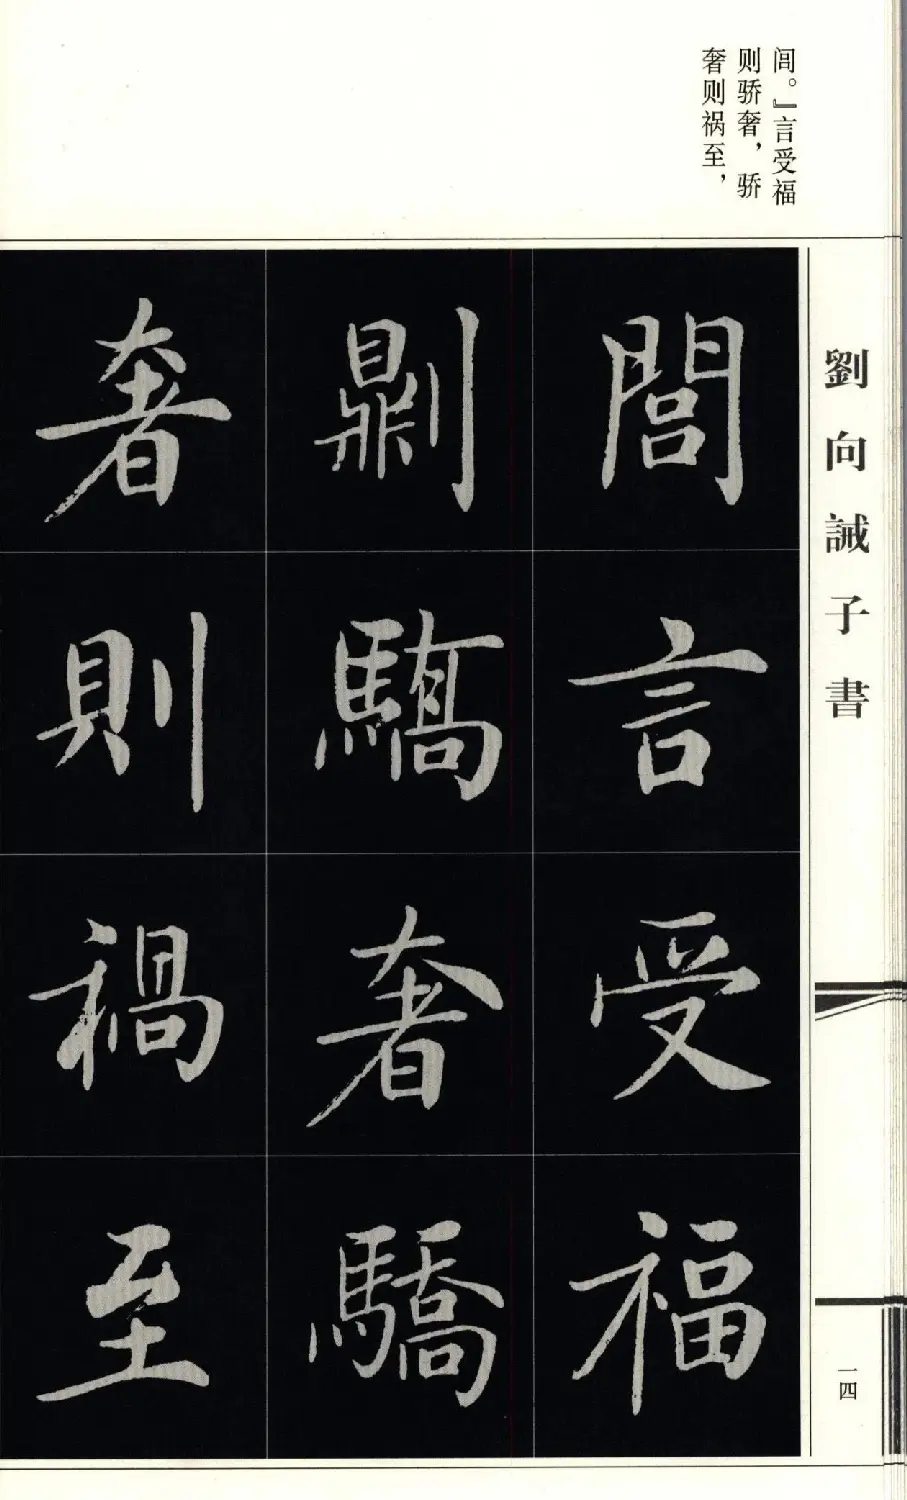 闾。』言受福
则骄奢，骄
奢则祸至，
劉向誡子書
閭言受福
剿驕奢驕
奢則禍至
一四